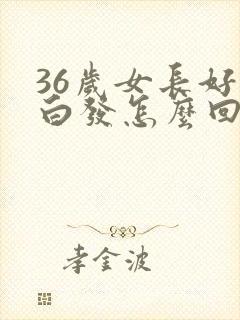 36歲女長好
白發怎麼回
李金波